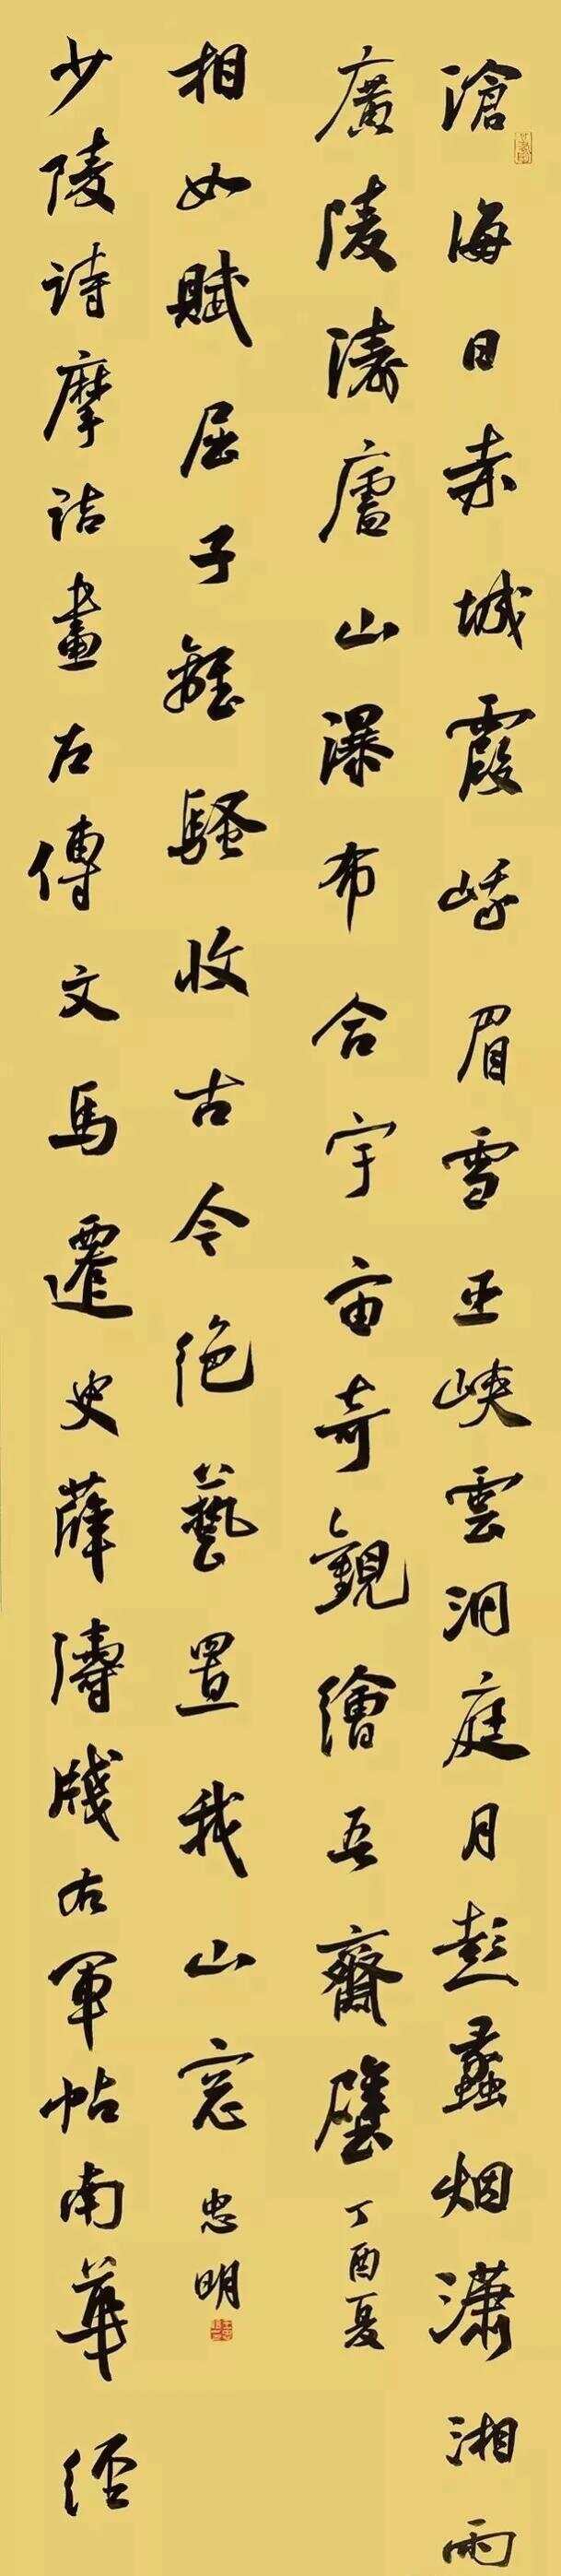 滄海日赤城霞峨眉雪巫峽雲洞庭月彭蠡烟瀟湘雨
廣陵濤廬山瀑布合宇宙奇觀繪吾齋壁
丁酉夏
少陵詩摩詰畫左傳文馬遷史薛濤牋右軍帖南華經
相如賦屈子離騷收古今絕藝置我山窓
忠明